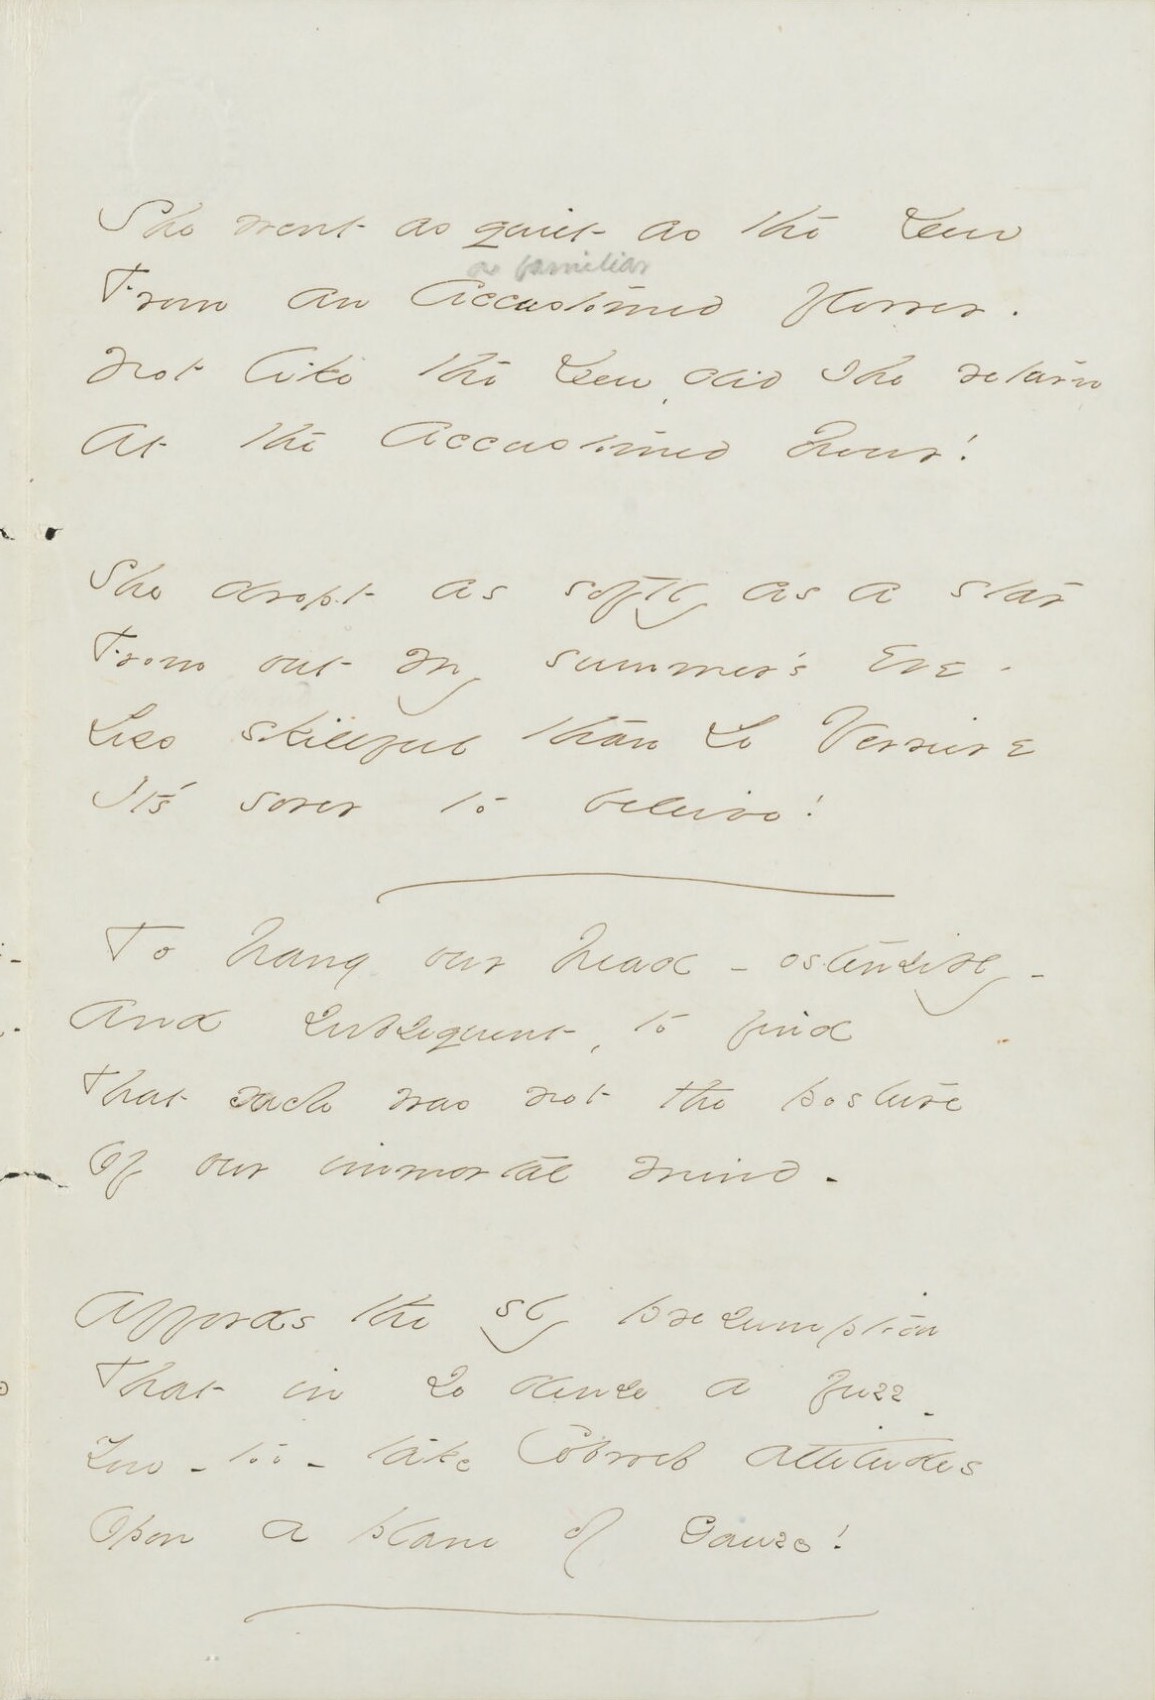 She went as quiet as the Dew
as familiar
From an Accustomed flower.
Not like the Dew, did she return
At the Accustomed hour!
She dropt as softly as a star
From out my summer's Eve -
Less skillful than Le Verriere
It's sorer to believe!
To hang our head - ostensibly -
And subsequent, to find
That such was not the posture
Of our immortal mind -
Affords the sly presumption
That in so dense a fuzz -
You - too - take Cobweb attitudes
Upon a plane of Gauze!